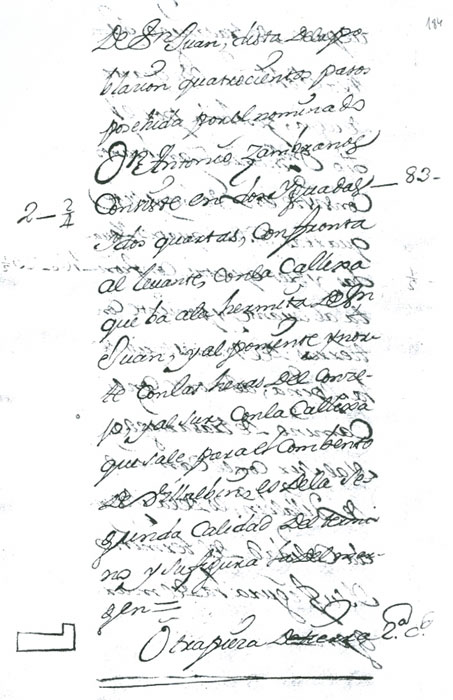 184
De Sn Juan, dista de la po
blazion quatrocientos pasos
posehida por el nominado
Dn Antonio Zambranos
Consiste en dos Yguadas — 83 -
2 — 2/4
Ydos quartas, confronta
al levante, con la Callexa
que ba ala hermita de Sn
Juan, y al poniente y nor
te con las heras del Conze
jo, y al sur, con la Callexa
que sale para el Combento
de Villalbin, es de la se
gunda Calidad del
y su figura la del mar
gen =
Otra pieza de tierra 2.a c.